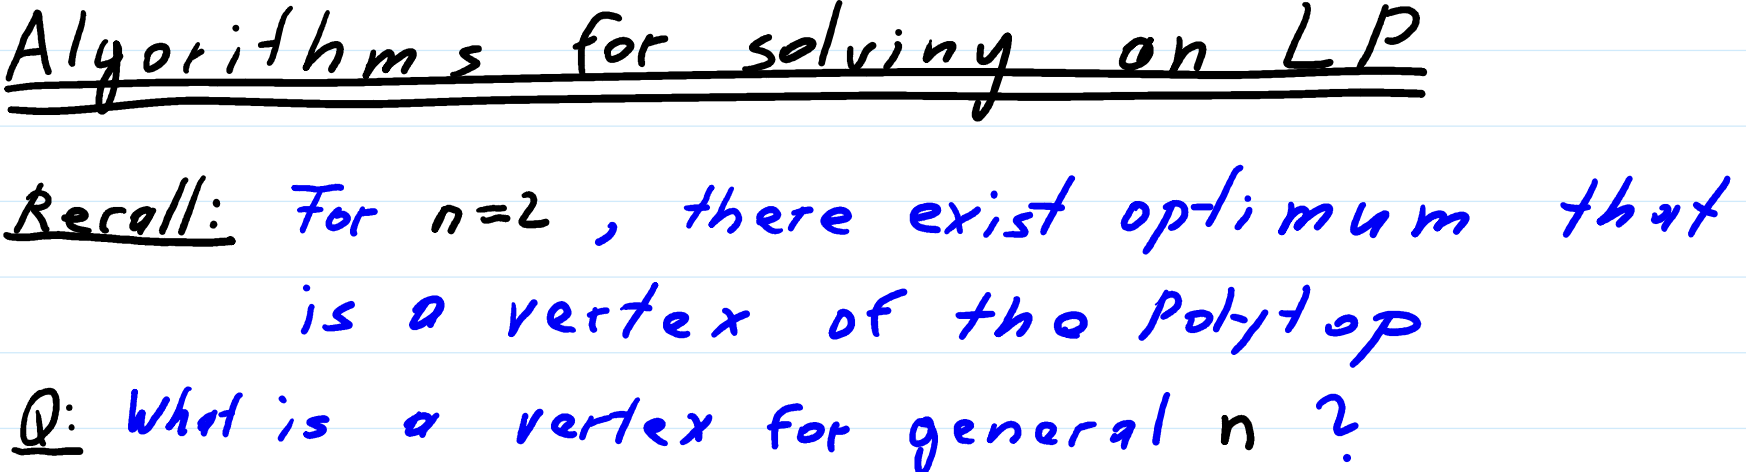 Algorithms for solving an LP
Recall: For n=2, there exist optimum that
is a vertex of the polytop
Q: What is a vertex for general n ?